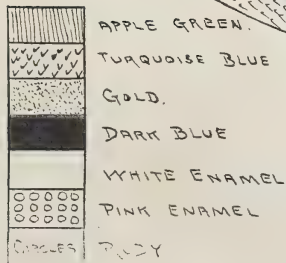 APPLE GREEN.
TURQUOISE BLUE
GOLD.
DARK BLUE
WHITE ENAMEL
PINK ENAMEL
CIRCLES